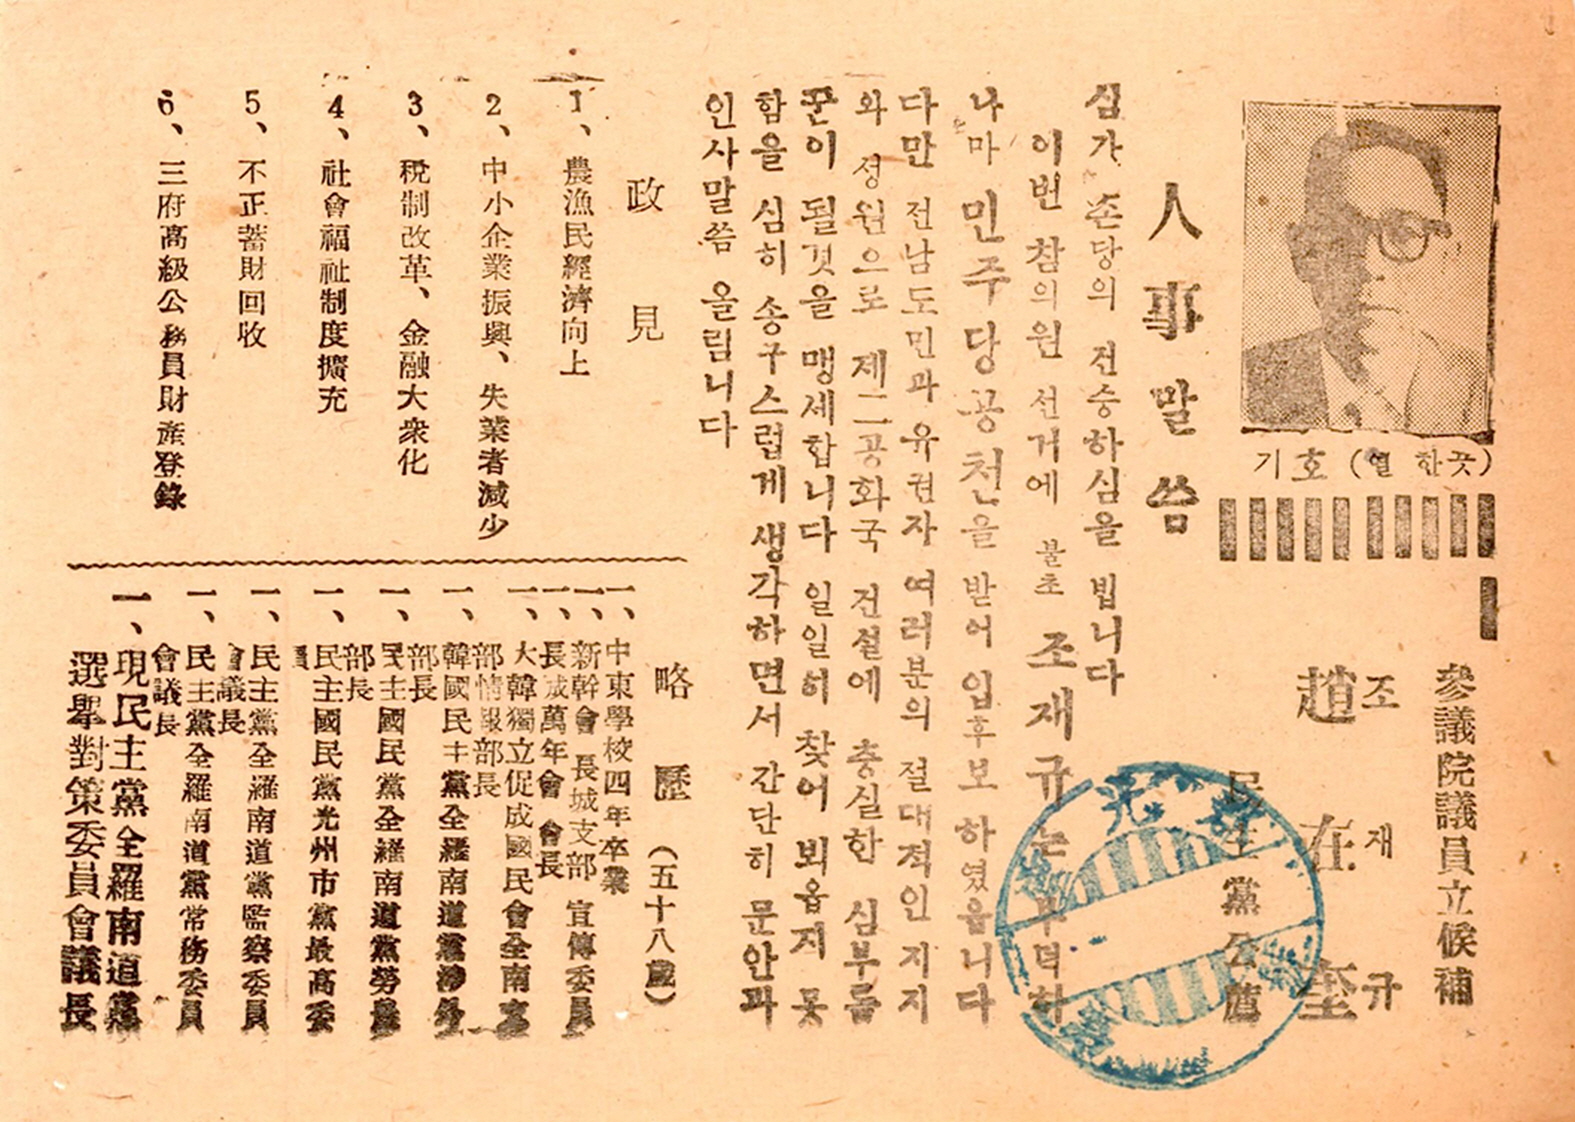 기호 (열 한끗)
參議院議員立候補
조재규
趙在奎
民主黨公薦
人事말씀
심가 존당의 건승하심을 빕니다
이번 참의원 선거에 불초 조재규는 부덕하
나마 민주당공천을 받어 입후보 하였읍니다
다만 전남도민과 유권자 여러분의 절대적인 지지
와 성원으로 제二공화국 건설에 충실한 심부름
꾼이 될것을 맹세합니다 일일히 찾어 뵈옵지 못
함을 심히 송구스럽게 생각하면서 간단히 문안과
인사말씀 올림니다
政見
1、農漁民經濟向上
2、中小企業振興、失業者減少
3、稅制改革、金融大衆化
4、社會福祉制度擴充
5、不正蓄財回收
6、三府高級公務員財産登錄
略歷 (五十八歲)
一、中東學校四年卒業
一、新幹會 長城支部 宣傳委員
一、長城萬年會 會長
一、大韓獨立促成國民會全南
部情報部長
一、韓國民主黨全羅南道黨涉外
部長
一、民主國民黨全羅南道黨勞農
部長
一、民主國民黨光州市黨最高委
員
一、民主黨全羅南道黨監察委員
會議長
一、民主黨全羅南道黨常務委員
會議長
一、現民主黨全羅南道黨
選擧對策委員會議長